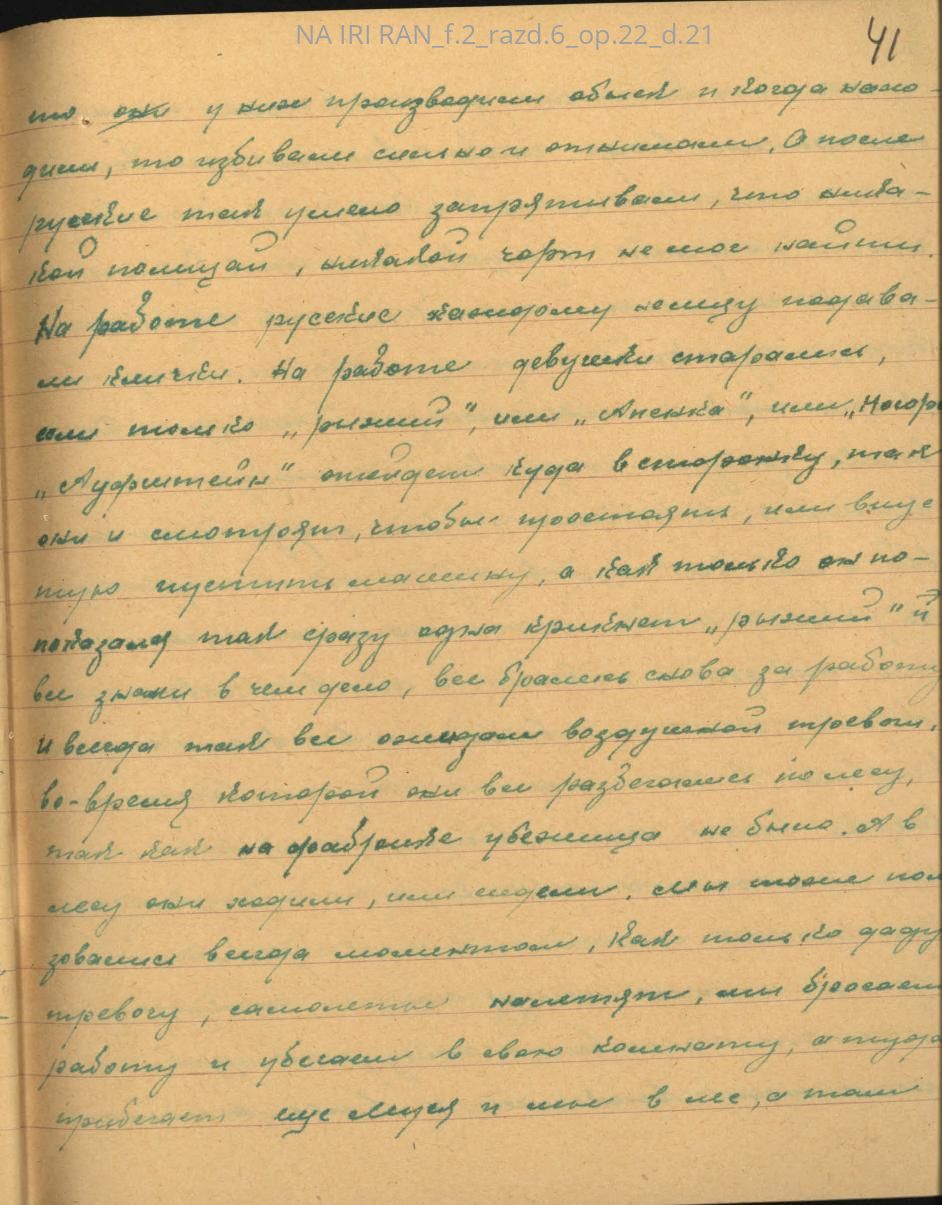 NA IRI RAN_f.2_razd.6_op.22_d.21
41
то они у них производили обыск и когда нахо-
дили, то избивали сильно и отнимали. А после
русские так умело запрятывали, что ника-
кой полицай, никакой чорт не мог найти.
На работе русские каждому немцу подава-
ли клички. На работе девушки старались,
если только „рыжий", или „Апенка", или
„Ауфштейн" отойдет куда в сторонку, так
они и смотрят, чтобы простоять, или впус-
тую пустить машину, а как только он по-
показался так сразу одна крикнет „рыжий" и
все знали в чем дело, все брались снова за работу
И всегда так все ожидали воздушной тревоги,
во-время которой они все разбегались по лесу,
так как на фабрике убежища не было. А в
лесу они ходили, или сидели. Мы тоже поль
зовались всегда моментом. Как только даду
тревогу, самолеты налетят, мы бросаем
работу и убегаем в свою комнату, а туда
прибегает еще Муся и мы в лес, а там